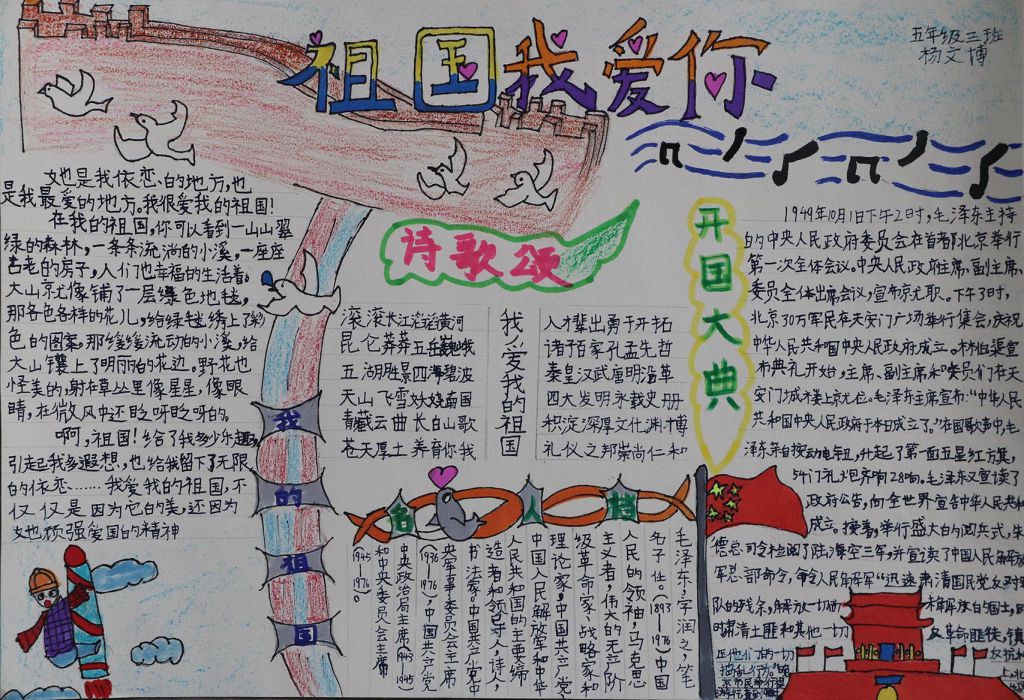 祖国我爱你
五年级三班
杨文博
她也是我依恋的地方,也
是我最爱的地方。我很爱我的祖国!
在我的祖国,你可以看到一山山翠
绿的森林,一条条流淌的小溪,一座座
古老的房子,人们也幸福的生活着。
大山就像铺了一层绿色地毯,
那各色各样的花儿,给绿毯绣上了彩
色的图案,那缓缓流动的小溪,给
大山镶上了明丽的花边。野花也
怪美的,躲在草丛里像星星,像眼
睛,在微风中还眨呀眨呀的。
啊,祖国!给了我多少乐趣,
引起我多遐想,也给我留下了无限
的依恋……我爱我的祖国,不
仅仅是因为它的美,还因为
她顽强爱国的精神
我的祖国
诗歌颂
滚滚长江滔滔黄河
昆仑莽莽五岳巍峨
五湖胜景四海碧波
天山飞雪妙娆南国
青藏云曲长白山歌
苍天厚土养育你我
我爱我的祖国
人才辈出勇于开拓
诸子百家孔孟先哲
秦皇汉武唐明沿革
四大发明永载史册
积淀深厚文化渊博
礼仪之邦崇尚仁和
名人档
毛泽东,字润之,笔
名子任。(1893—1976)中国
人民的领袖,马克思
主义者,伟大的无产阶
级革命家、战略家和
理论家,中国共产党
中国人民解放军和中华
人民共和国的主要缔
造者和领导人,诗人,
书法家。中国共产党中
央军事委员会主席
(1936—1976),中国共产党
中央政治局主席(1943—1945)
和中央委员会主席
(1945—1976)。
开国大典
1949年10月1日下午2时,毛泽东主持
的中央人民政府委员会在首都北京举行
第一次全体会议。中央人民政府主席、副主席、
委员全体出席会议,宣布就职。下午3时,
北京30万军民在天安门广场举行集会,庆祝
中华人民共和国中央人民政府成立。林伯渠宣
布典礼开始,主席、副主席和委员们在天
安门城楼上就位。毛泽东主席宣布:“中华人民
共和国中央人民政府于本日成立了。”在国歌声中,毛
泽东亲自按动电钮,升起了第一面五星红旗,
54门礼炮齐响28响。毛泽东又宣读了
政府公告,向全世界宣告中华人民
成立。接着,举行盛大的阅兵式,朱
德总司令检阅了陆海空三军,并宣读了中国人民解放
军总部命令,命令人民解放军“迅速肃清国民党反动
队的残余,解放一切
未解放的国土,同
时肃清土匪和其他一切
反革命匪徒,镇
压他们的一切